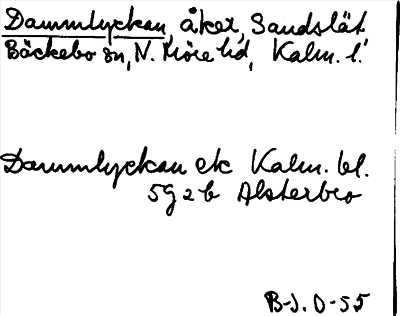 Dammlyckan, åker, Sandslät
Bäckebo sn, N. Möre hd, Kalm. l.
Dammlyckan ek Kalm. bl.
5g 2 b Alsterbro
B-J. O-55